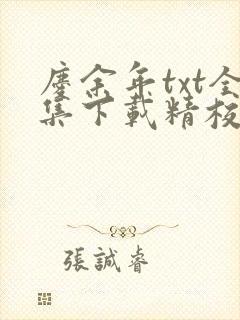 慶余年txt全
集下載精校
張誠睿